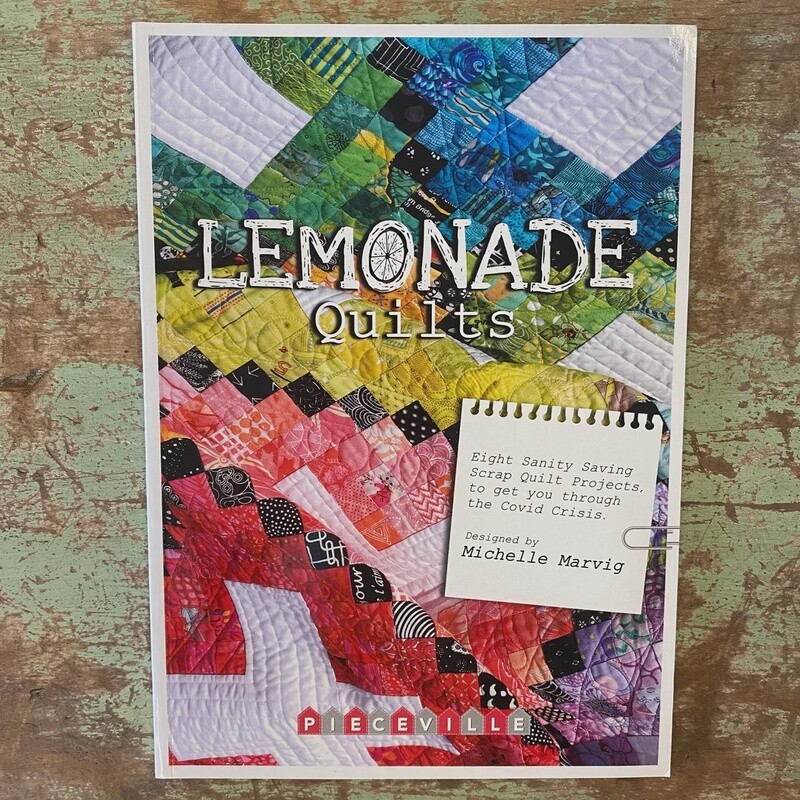 LEMONADE
Quilts
Eight Sanity Saving
Scrap Quilt Projects,
to get you through
the Covid Crisis.
Designed by
Michelle Marvig
PIECEVILLE